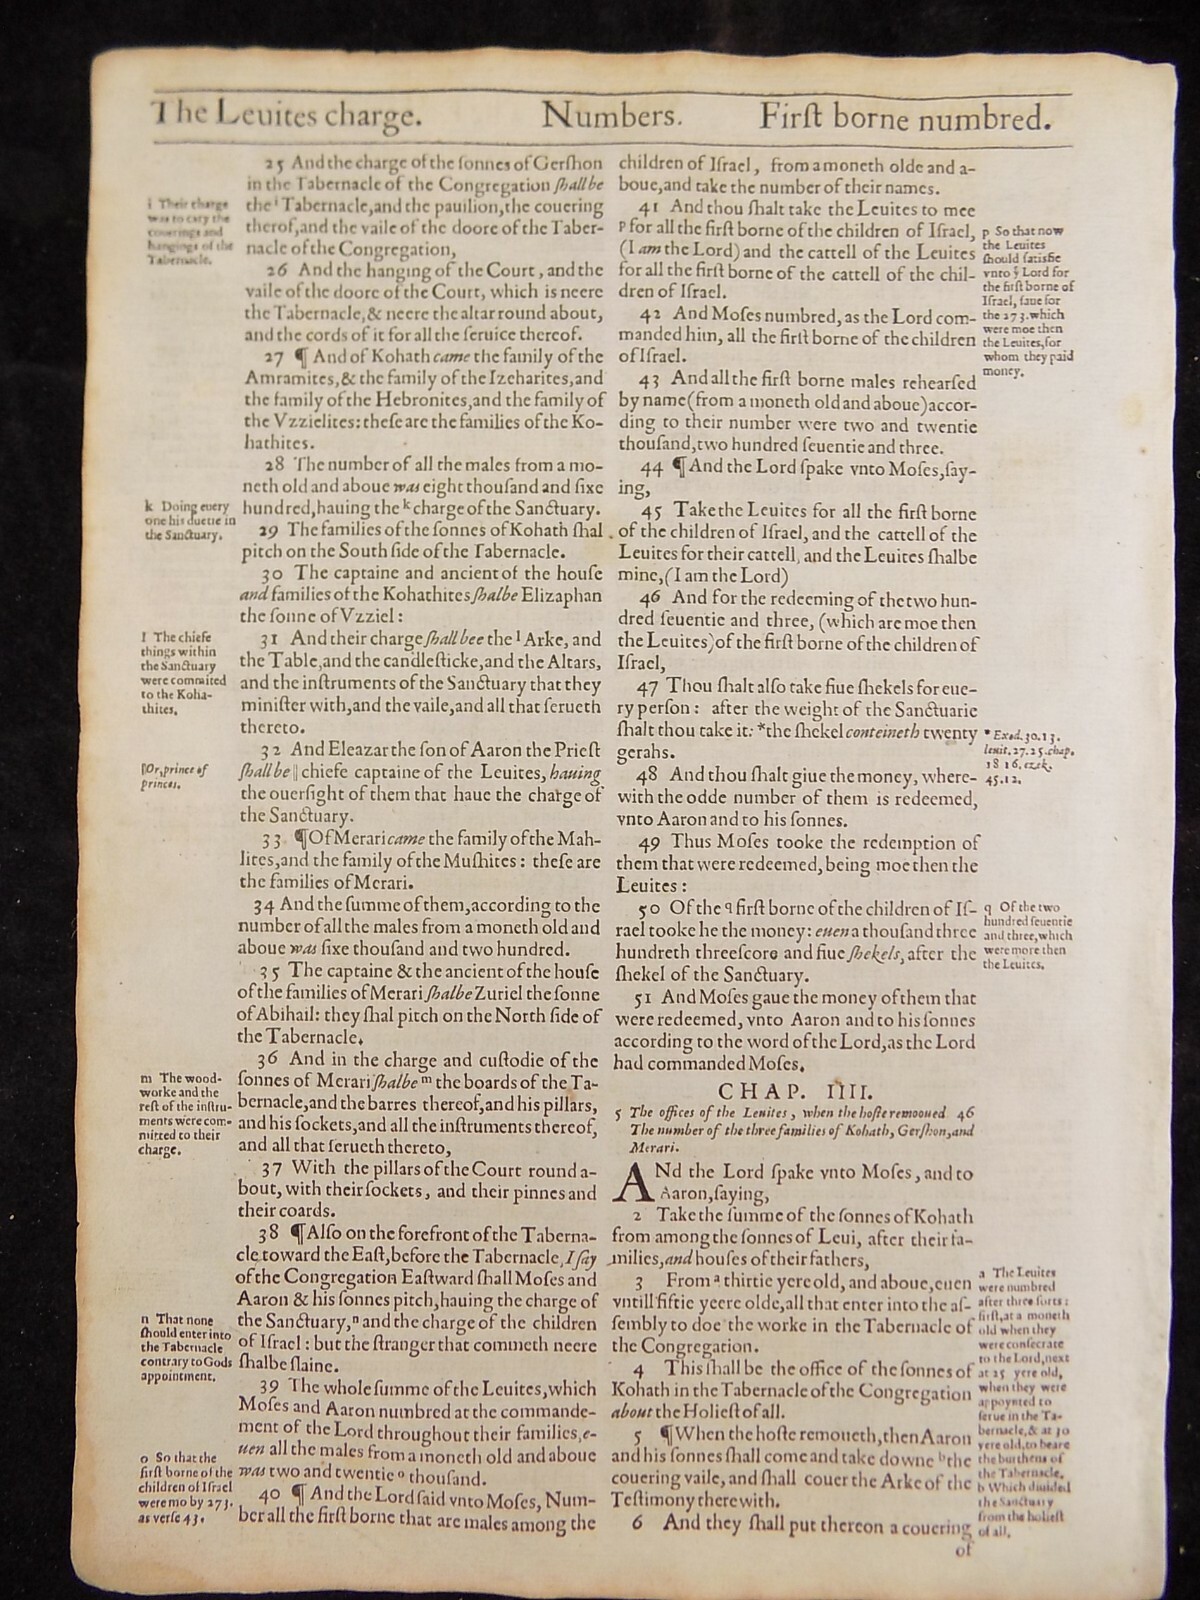 The Leuites charge. Numbers. Firſt borne numbred.
25 And the charge of the ſonnes of Gerſhon
in the Tabernacle of the Congregation ſhall be
the i Tabernacle,and the pauilion,the couering
therof,and the vaile of the doore of the Taber-
nacle of the Congregation,
26 And the hanging of the Court, and the
vaile of the doore of the Court, which is neere
the Tabernacle,& neere the altar round about,
and the cords of it for all the ſeruice thereof.
27 ¶ And of Kohath came the family of the
Amramites,& the family of the Izeharites,and
the family of the Hebronites,and the family of
the Vzzielites: theſe are the families of the Ko-
hathites.
28 The number of all the males from a mo-
neth old and aboue was eight thouſand and ſixe
hundred,hauing the k charge of the Sanctuary.
29 The families of the ſonnes of Kohath ſhal
pitch on the South ſide of the Tabernacle.
30 The captaine and ancient of the houſe
and families of the Kohathites ſhalbe Elizaphan
the ſonne of Vzziel:
31 And their charge ſhall bee the l Arke, and
the Table,and the candleſticke,and the Altars,
and the inſtruments of the Sanctuary that they
miniſter with,and the vaile,and all that ſerueth
thereto.
32 And Eleazar the ſon of Aaron the Prieſt
ſhall be ‖ chiefe captaine of the Leuites, hauing
the ouerſight of them that haue the charge of
the Sanctuary.
33 ¶Of Merari came the family of the Mah-
lites,and the family of the Muſhites: theſe are
the families of Merari.
34 And the ſumme of them,according to the
number of all the males from a moneth old and
aboue was ſixe thouſand and two hundred.
35 The captaine & the ancient of the houſe
of the families of Merari ſhalbe Zuriel the ſonne
of Abihail: they ſhal pitch on the North ſide of
the Tabernacle.
36 And in the charge and cuſtodie of the
ſonnes of Merari ſhalbe m the boards of the Ta-
bernacle,and the barres thereof,and his pillars,
and his ſockets,and all the inſtruments thereof,
and all that ſerueth thereto,
37 With the pillars of the Court round a-
bout, with their ſockets, and their pinnes and
their coards.
38 ¶Alſo on the forefront of the Taberna-
cle toward the Eaſt,before the Tabernacle, I ſay
of the Congregation Eaſtward ſhall Moſes and
Aaron & his ſonnes pitch,hauing the charge of
the Sanctuary,n and the charge of the children
of Iſrael: but the ſtranger that commeth neere
ſhalbe ſlaine.
39 The whole ſumme of the Leuites,which
Moſes and Aaron numbred at the commande-
ment of the Lord throughout their families,e-
uen all the males from a moneth old and aboue
was two and twentie o thouſand.
40 ¶ And the Lord ſaid vnto Moſes, Num-
ber all the firſt borne that are males among the
i Their charge
was to cary the
couerings and
hangings of the
Tabernacle.
k Doing euery
one his duetie in
the Sanctuary.
l The chiefe
things within
the Sanctuary
were commited
to the Koha-
thites.
‖Or,prince of
princes.
m The wood-
worke and the
reſt of the inſtru-
ments were com-
mitted to their
charge.
n That none
ſhould enter into
the Tabernacle
contrary to Gods
appointment.
o So that the
firſt borne of the
children of Iſrael
were mo by 273.
as verſe 43.
children of Iſrael, from a moneth olde and a-
boue,and take the number of their names.
41 And thou ſhalt take the Leuites to mee
p for all the firſt borne of the children of Iſrael,
(I am the Lord) and the cattell of the Leuites
for all the firſt borne of the cattell of the chil-
dren of Iſrael.
42 And Moſes numbred, as the Lord com-
manded him, all the firſt borne of the children
of Iſrael.
43 And all the firſt borne males rehearſed
by name(from a moneth old and aboue)accor-
ding to their number were two and twentie
thouſand,two hundred ſeuentie and three.
44 ¶And the Lord ſpake vnto Moſes,ſay-
ing,
45 Take the Leuites for all the firſt borne
of the children of Iſrael, and the cattell of the
Leuites for their cattell, and the Leuites ſhalbe
mine,(I am the Lord)
46 And for the redeeming of the two hun-
dred ſeuentie and three, (which are moe then
the Leuites)of the firſt borne of the children of
Iſrael,
47 Thou ſhalt alſo take fiue ſhekels for eue-
ry perſon: after the weight of the Sanctuarie
ſhalt thou take it: *the ſhekel conteineth twenty
gerahs.
48 And thou ſhalt giue the money, where-
with the odde number of them is redeemed,
vnto Aaron and to his ſonnes.
49 Thus Moſes tooke the redemption of
them that were redeemed, being moe then the
Leuites:
50 Of the q firſt borne of the children of Iſ-
rael tooke he the money: euen a thouſand three
hundreth threeſcore and fiue ſhekels, after the
ſhekel of the Sanctuary.
51 And Moſes gaue the money of them that
were redeemed, vnto Aaron and to his ſonnes
according to the word of the Lord,as the Lord
had commanded Moſes.
CHAP. IIII.
5 The offices of the Leuites, when the hoſte remooued. 46
The number of the three families of Kohath, Gerſhon,and
Merari.
ANd the Lord ſpake vnto Moſes, and to
Aaron,ſaying,
2 Take the ſumme of the ſonnes of Kohath
from among the ſonnes of Leui, after their fa-
milies,and houſes of their fathers,
3 From a thirtie yere old, and aboue,euen
vntill fiftie yeere olde,all that enter into the aſ-
ſembly to doe the worke in the Tabernacle of
the Congregation.
4 This ſhall be the office of the ſonnes of
Kohath in the Tabernacle of the Congregation
about the Holieſt of all.
5 ¶When the hoſte remoueth,then Aaron
and his ſonnes ſhall come and take downe b the
couering vaile, and ſhall couer the Arke of the
Teſtimony therewith.
6 And they ſhall put thereon a couering
of
p So that now
the Leuites
ſhould ſatisfie
vnto ẏ Lord for
the firſt borne of
Iſrael, ſaue for
the 273. which
were moe then
the Leuites,for
whom they paid
money.
* Exod. 30.13.
leuit. 27.25. chap.
18 16. ezek.
45.12.
q Of the two
hundred ſeuentie
and three,which
were more then
the Leuites.
a The Leuites
were numbred
after three ſorts:
firſt,at a moneth
old when they
were conſecrate
to the Lord,next
at 25 yere old,
when they were
appoynted to
ſerue in the Ta-
bernacle,& at 30
yere old,to beare
the burthens of
the Tabernacle.
b Which diuided
the Sanctuary
from the holieſt
of all.